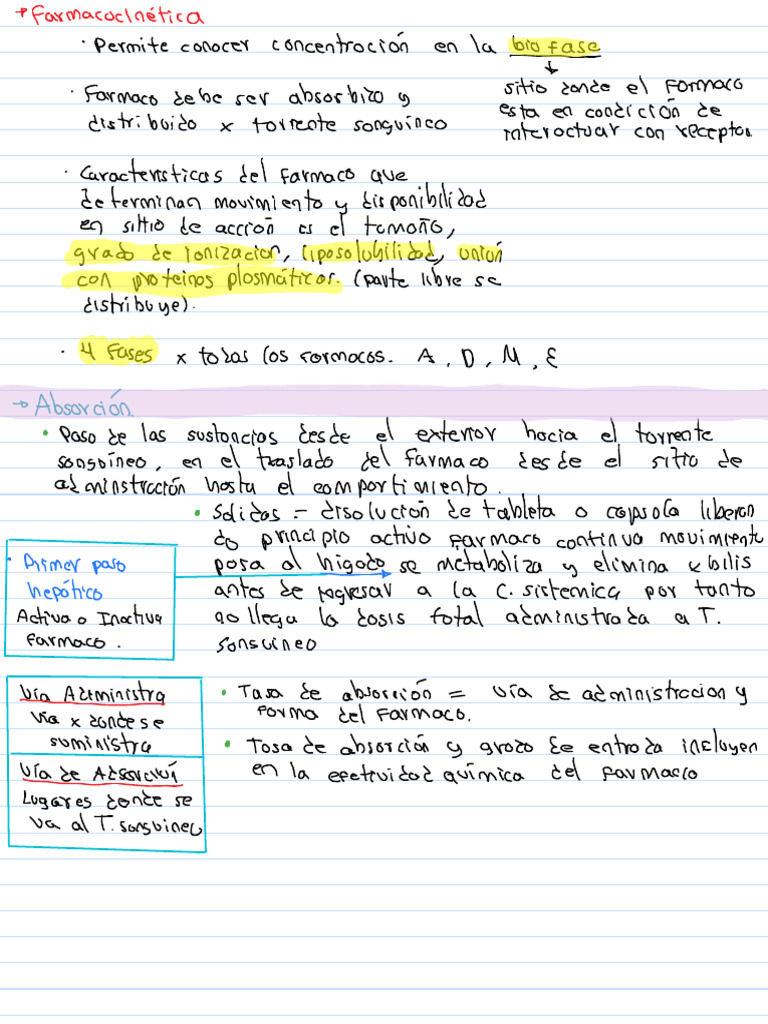 → Farmacocinética
· Permite conocer concentración en la biofase
↓
sitio donde el farmaco
esta en condición de
interactuar con receptor.
· Farmaco debe ser absorbido y
distribuido x torrente sanguíneo
· Características del farmaco que
determinan movimiento y disponibilidad
en sitio de acción es el tamaño,
grado de ionización, liposolubilidad, unión
con proteinas plasmáticas. (parte libre se
distribuye).
· 4 fases x todas las farmacos. A, D, M, E
→ Absorción.
• Paso de las sustancias desde el exterior hacia el torrente
sanguíneo, en el traslado del farmaco desde el sitio de
administración hasta el compartimiento.
• Solidos = disolución de tableta o capsula liberan
do principio activo farmaco continua movimiento
pasa al higado se metaboliza y elimina x bilis
antes de regresar a la C. sistemica por tanto
no llega la dosis total administrada a T.
sanguineo
· Primer paso
hepático
Activa o Inactiva
farmaco.
Vía Administra
Vía x donde se
suministra
Vía de Absorción
Lugares donde se
va al T. sanguineo
• Tasa de absorción = vía de administracion y
forma del farmaco.
• Tasa de absorción y grado de entrada incluyen
en la efetividad química del farmacio